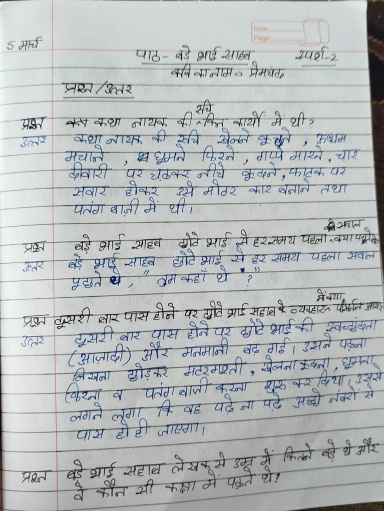 Date
Page
5 मार्च
पाठ- बड़े भाई साहब स्पर्श-2
कवि का नाम- प्रेमचंद
प्रश्न/उत्तर
प्रश्न कथा नायक की रुचि किन कार्यों में थी?
उत्तर कथा नायक की रुचि खेलने कूदने, ऊधम
मचाने, घूमने फिरने, गप्पे मारने, चार
दीवारी पर चढ़कर नीचे कूदने, फाटक पर
सवार होकर उसे मोटर कार बनाने तथा
पतंग बाज़ी में थी।
प्रश्न बड़े भाई साहब छोटे भाई से हर समय पहला सवाल क्या
उत्तर बड़े भाई साहब छोटे भाई से हर समय पहला सवाल
पूछते थे, "तुम कहाँ थे?"
प्रश्न दूसरी बार पास होने पर छोटे भाई साहब के व्यवहार में क्या
उत्तर दूसरी बार पास होने पर छोटे भाई की स्वच्छंदता
(आजादी) और मनमानी बढ़ गई। उसने पढ़ना
लिखना छोड़कर मटरगश्ती, खेलना कूदना, घूमना
फिरना व पतंग बाजी करना शुरू कर दिया। उसे
लगने लगा कि वह पढ़े ना पढ़े अच्छे नंबरों से
पास हो ही जाएगा।
प्रश्न बड़े भाई साहब लेखक से उम्र में कितने बड़े थे और
वे कौन सी कक्षा में पढ़ते थे?